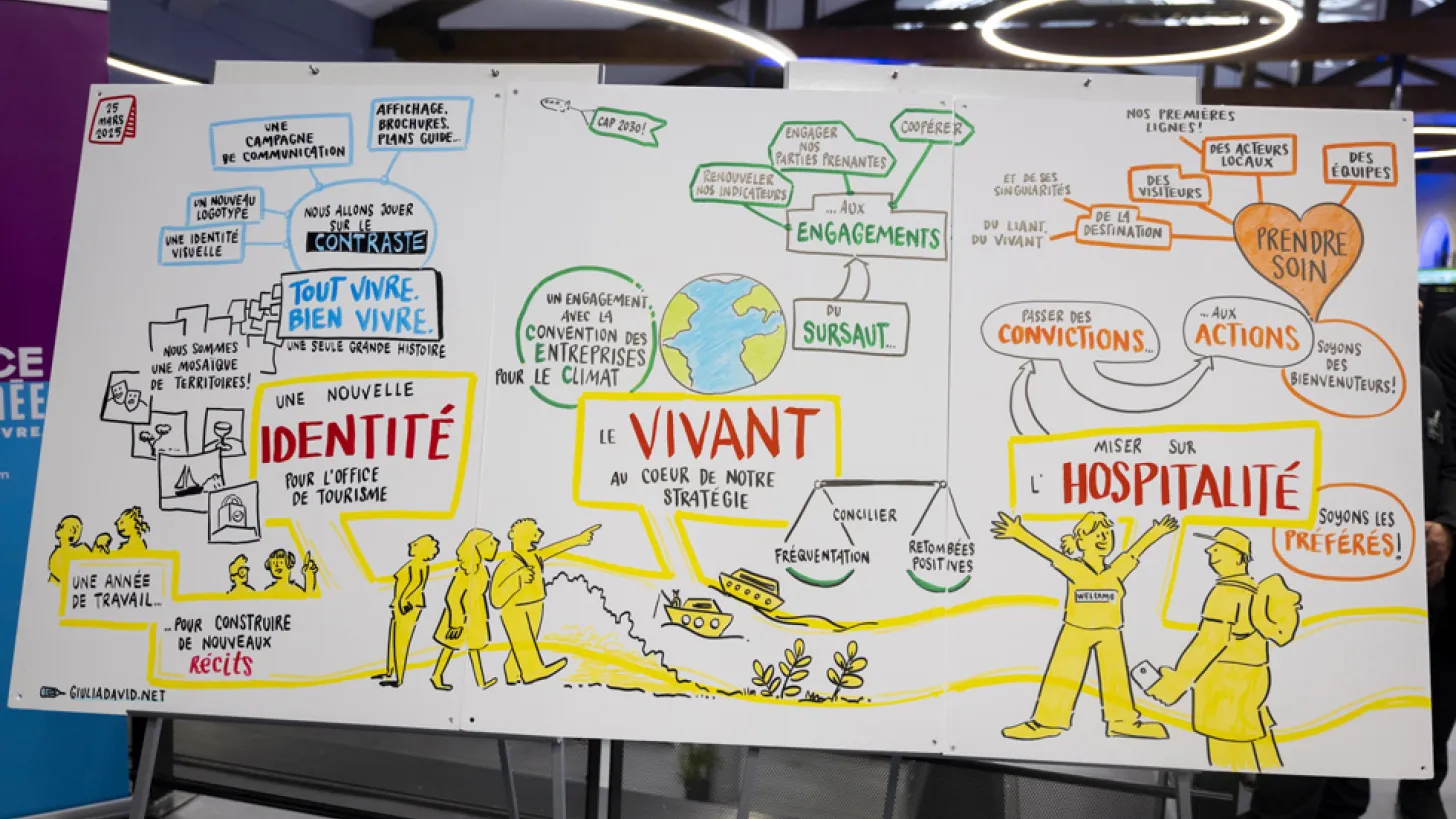 25
MARS
2025
UNE
CAMPAGNE
DE COMMUNICATION
AFFICHAGE,
BROCHURES,
PLANS GUIDE...
UN NOUVEAU
LOGOTYPE
UNE IDENTITÉ
VISUELLE
NOUS ALLONS JOUER
SUR LE
CONTRASTE
TOUT VIVRE.
BIEN VIVRE.
UNE SEULE GRANDE HISTOIRE
NOUS SOMMES
UNE MOSAÏQUE
DE TERRITOIRES!
UNE NOUVELLE
IDENTITÉ
POUR L'OFFICE
DE TOURISME
UNE ANNÉE
DE TRAVAIL...
...POUR CONSTRUIRE
DE NOUVEAUX
RÉCITS
GIULIADAVID.NET
CAP 2030!
RENOUVELER
NOS INDICATEURS
ENGAGER
NOS
PARTIES PRENANTES
COOPÉRER
...AUX
ENGAGEMENTS
DU
SURSAUT...
UN ENGAGEMENT
AVEC LA
CONVENTION DES
ENTREPRISES
POUR LE CLIMAT
LE VIVANT
AU COEUR DE NOTRE
STRATÉGIE
CONCILIER
FRÉQUENTATION
RETOMBÉES
POSITIVES
NOS PREMIÈRES
LIGNES!
DES ACTEURS
LOCAUX
DES
ÉQUIPES
DES
VISITEURS
ET DE SES
SINGULARITÉS
DE LA
DESTINATION
DU LIANT,
DU VIVANT
PRENDRE
SOIN
PASSER DES
CONVICTIONS...
...AUX
ACTIONS
SOYONS
DES
BIENVENUTEURS!
MISER SUR
L'HOSPITALITÉ
SOYONS LES
PRÉFÉRÉS!
WELCOME
CE
ÉE
VRE.
m